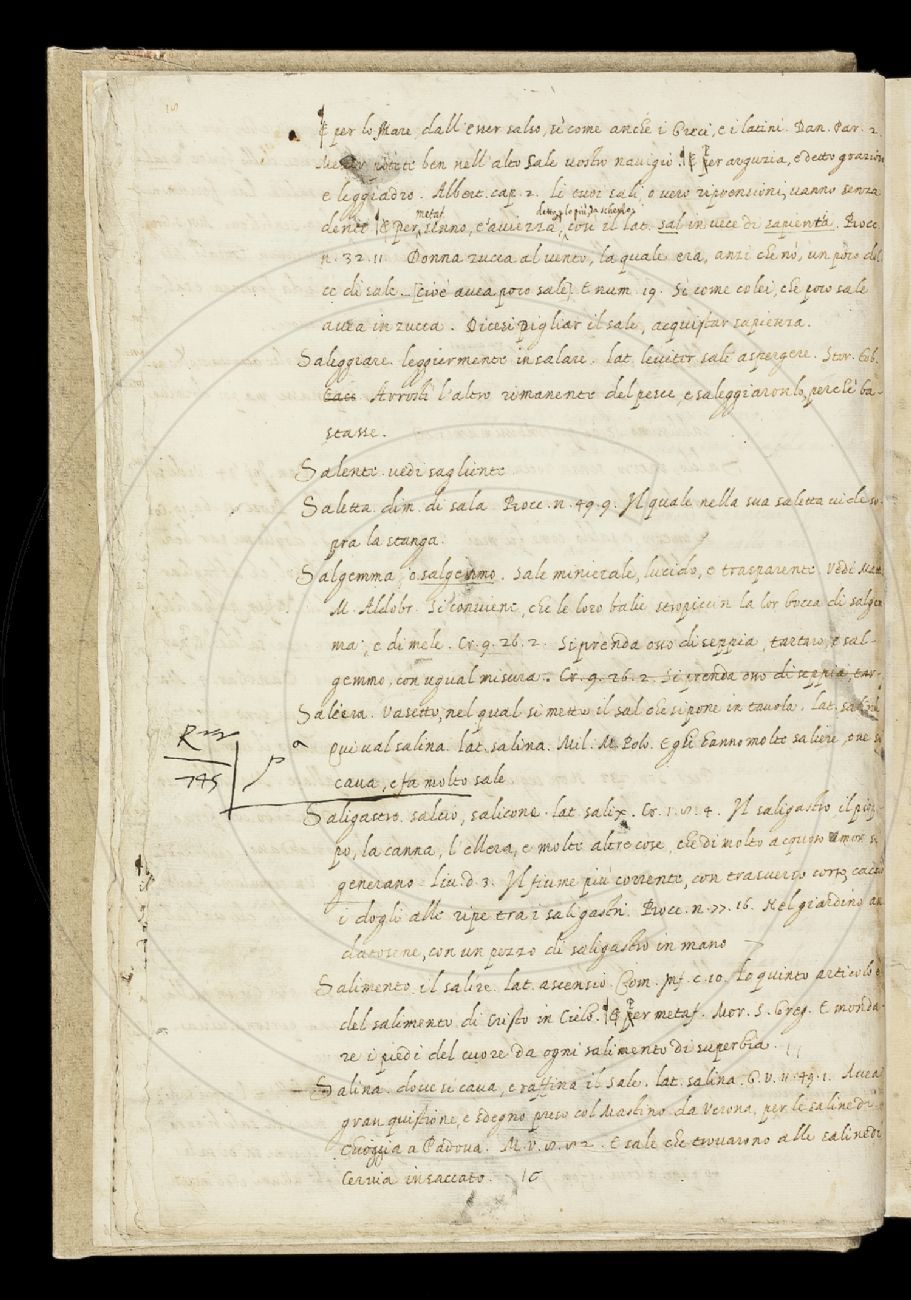 E per lo Mare, dall'esser salso, sì come anche i Greci, e i latini. Dan. Par. 2.
Metter potete ben nell'alto sale vostro navigio. E Per arguzia, e detto grazioso
e leggiadro. Albert. cap. 2. li tuoi sali, o vero riprensioni, vanno senza
dente. E per metaf. senno, e avvezza, detto p lo più da scherzo, così il lat. sal in vece di sapientia. Bocc.
n. 32. 11. Donna zucca al vento, la quale era, anzi che nò, un poco dol
ce di sale. [cioè avea poco sale] E num. 19. Si come colei, che poco sale
avea in zucca. Dicesi Pigliar il sale, acquistar sapienza.
Saleggiare. leggiermente insalare. lat. leviter sale aspergere. Stor. Tob.
Arrostì l'altro rimanente del pesce, e saleggiaronlo, perchè ba-
stasse.
Salente. vedi sagliente
Saletta. dim. di sala. Bocc. n. 49. 9. Il quale nella sua saletta vide so-
pra la stanga.
Salgemma, e salgemmo. Sale minerale, lucido, e trasparente. Vedi Mat.
M. Aldobr. Si conviene, che le loro balie stropiccin la lor bocca di salgem
ma, e di mele. Cr. 9. 26. 2. Si prenda osso di seppia, tartaro, e sal-
gemmo, con ugual misura. Cr. 9. 26. 2. Si prenda osso di seppia, tar-
Saliera. Vasetto, nel qual si mette il sal che si pone in tavola. lat. salinum
Qui val salina. lat. salina. Mil. M. Polo. E gli hanno molte saliere, ove si
cava, e fa molto sale.
745
Saligastro. salcio, salicone. lat. salix. Cr. 4. Il saligastro, il piop-
po, la canna, l'ellera, e molte altre cose, che di molto acquoso umore si
generano. Liv. d. 3. Il fiume più corrente, con trasverso corso, cacciò
i dogli alle ripe tra i saligastri. Bocc. n. 77. 16. Nel giardino an
datosene, con un pezzo di saligastro in mano
Salimento. il salire. lat. ascensio. Com. Inf. c. 10. Lo quinto articolo è
del salimento di Cristo in Cielo. E Per metaf. Mor. S. Greg. E monda-
re i piedi del cuore da ogni salimento di superbia.
Salina. dove si cava, e raffina il sale. lat. salina. G. V. 11. 49. 1. Avea
gran quistione, e sdegno preso col Mastino da Verona, per le saline di
Chioggia a Padova. M. V. 8. 82. E sale che trovarono alle saline di
Cervia insaccato.